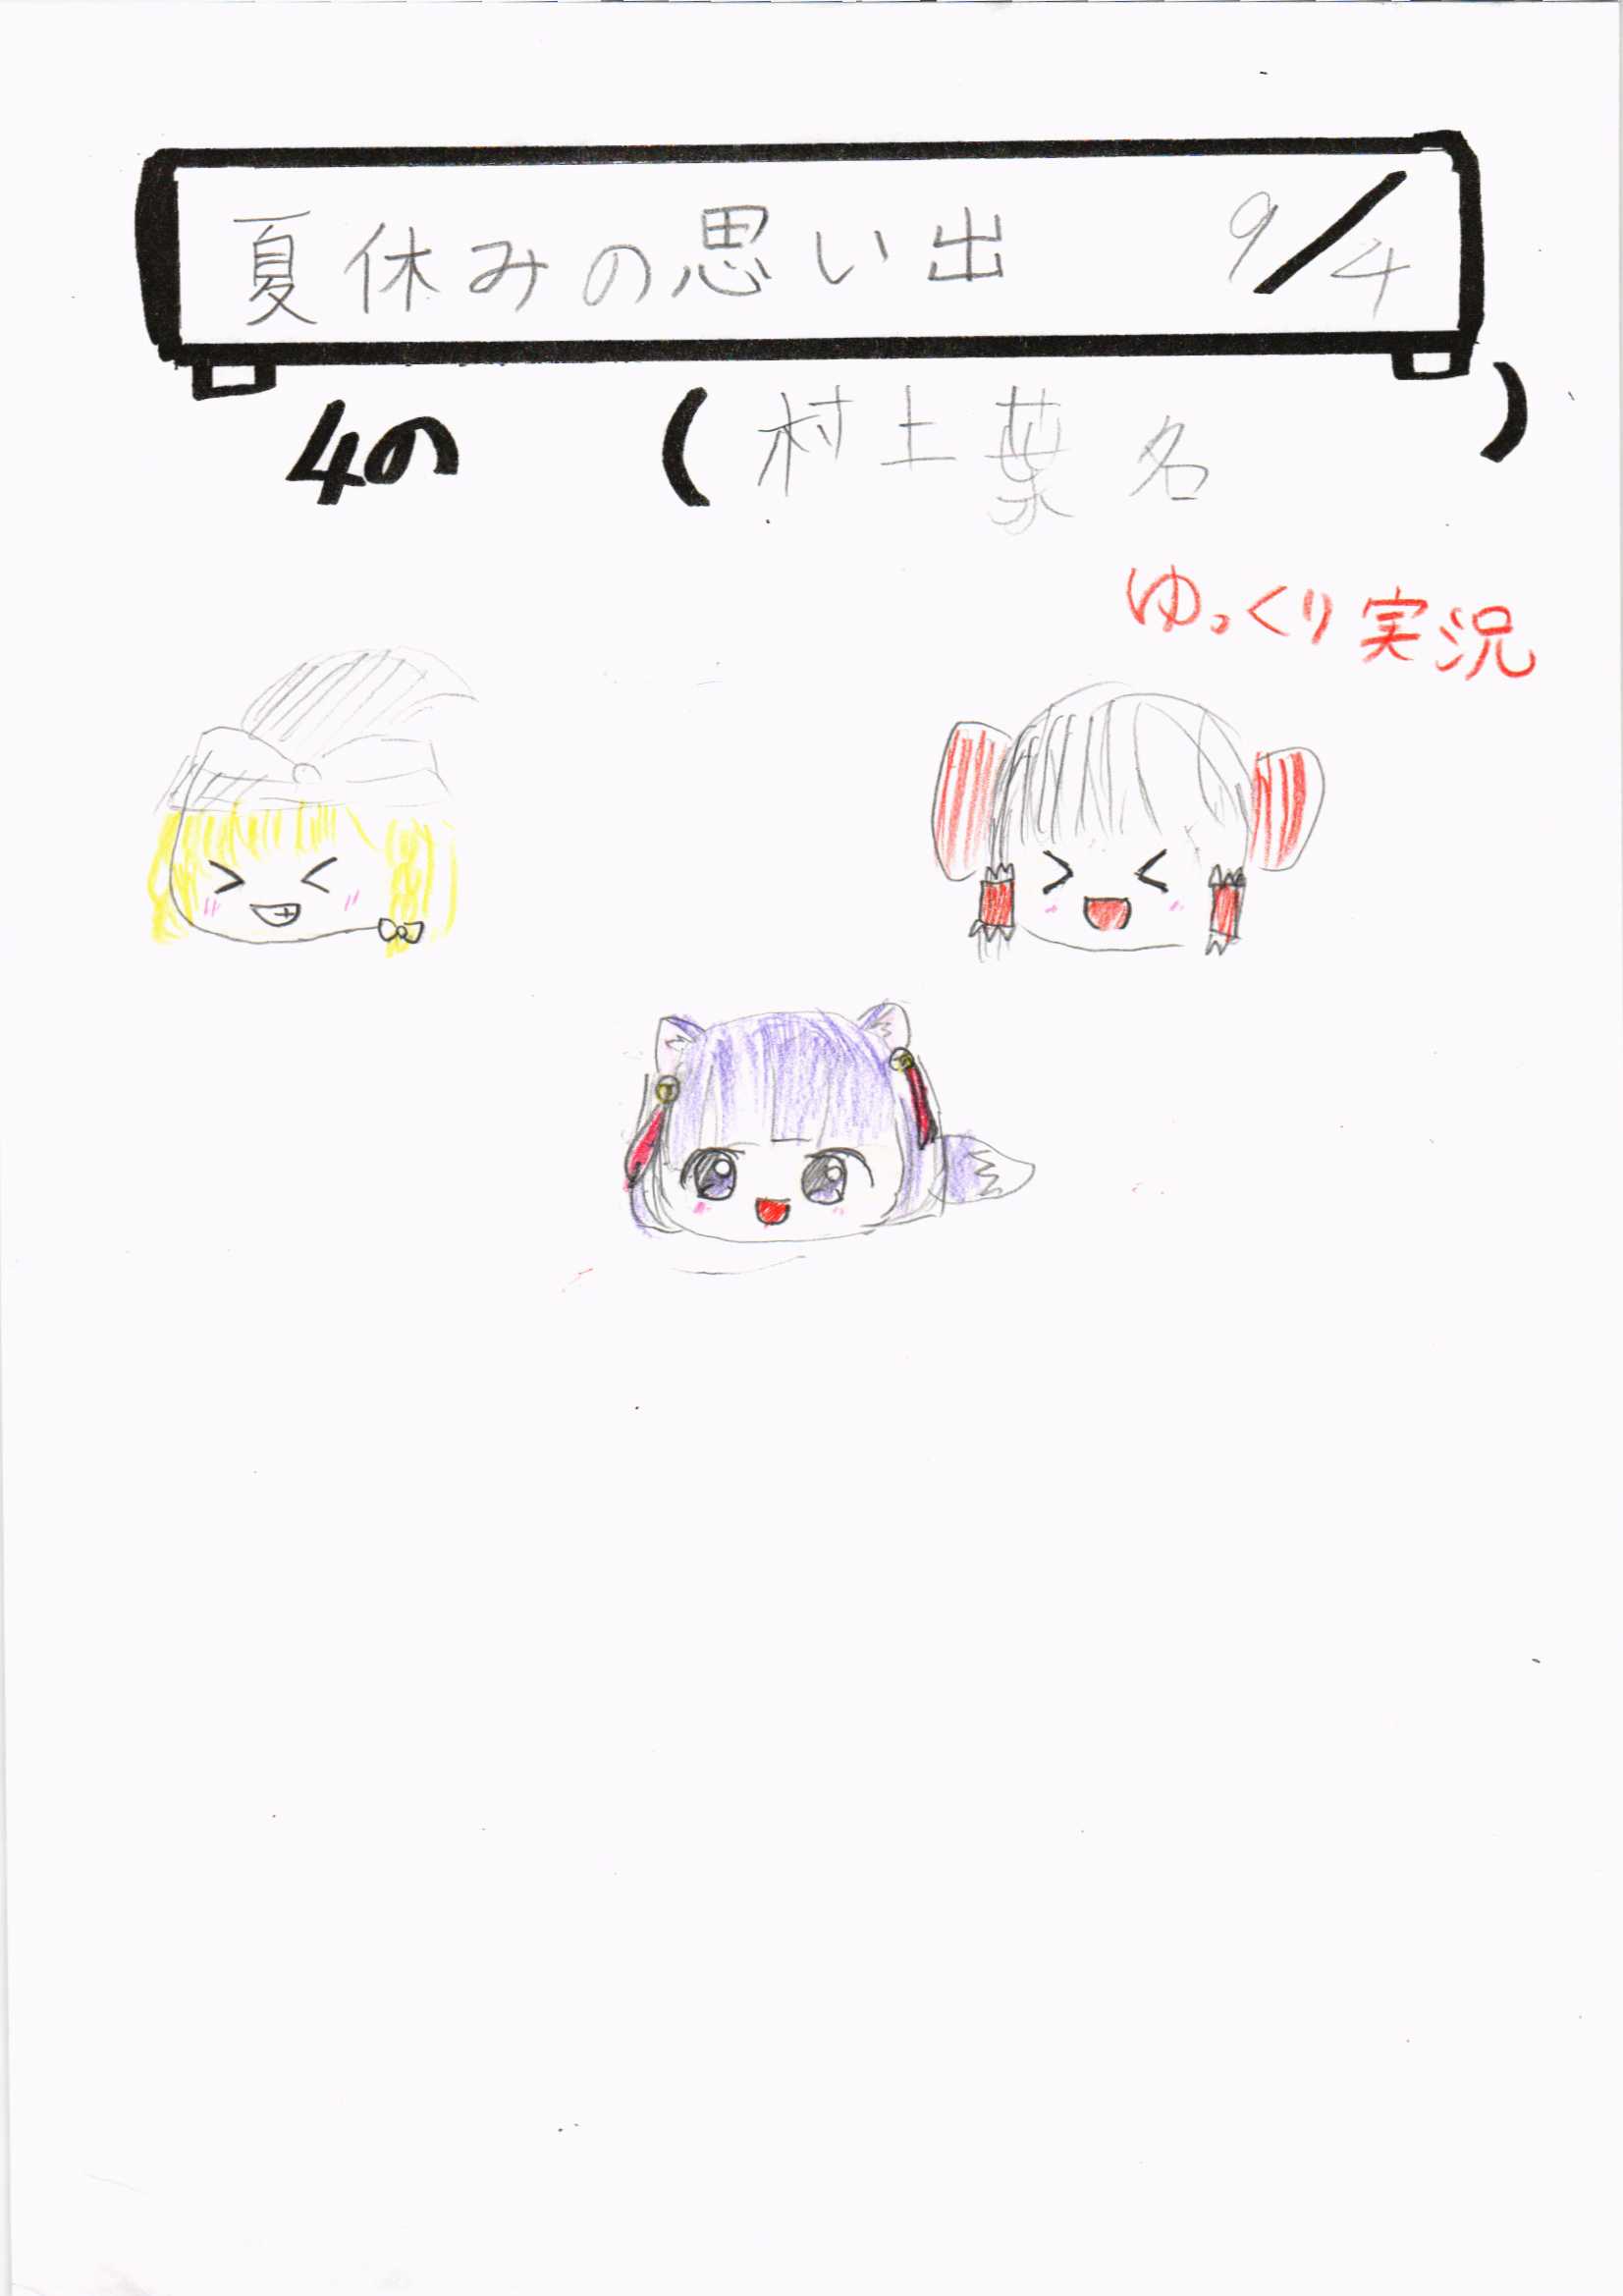 夏休みの思い出 9/4
4の (村上葉名)
ゆっくり実況